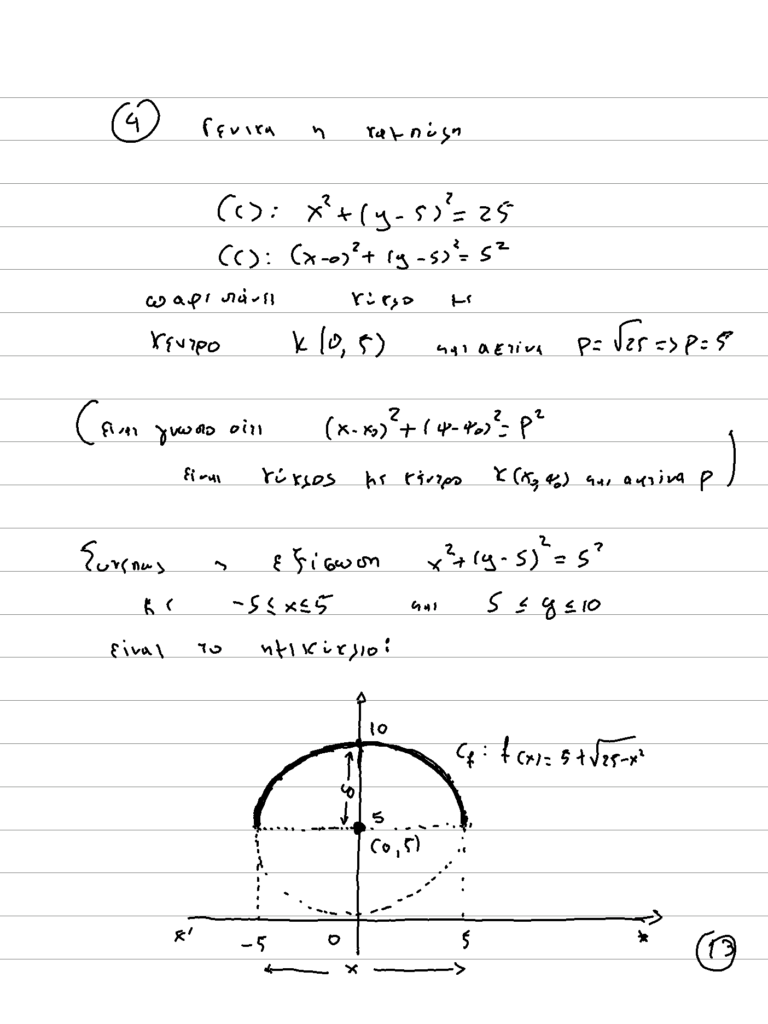 ④ Γενικα η καμπύλη
(C): x² + (y - 5)² = 25
(C): (x-0)² + (y - 5)² = 5²
παριστάνει κύκλο με
κέντρο K(0, 5) και ακτίνα ρ = √25 => ρ = 5
(Είναι γνωστό ότι (x-x₀)² + (ψ-ψ₀)² = ρ²
είναι κύκλος με κέντρο K(x₀, ψ₀) και ακτίνα ρ)
Συνεπως η εξίσωση x² + (y - 5)² = 5²
με -5 ≤ x ≤ 5 και 5 ≤ y ≤ 10
είναι το ημικύκλιο:
10
C_f: f(x) = 5 + √25-x²
5
(0, 5)
x' -5 0 5 x
x
⑬